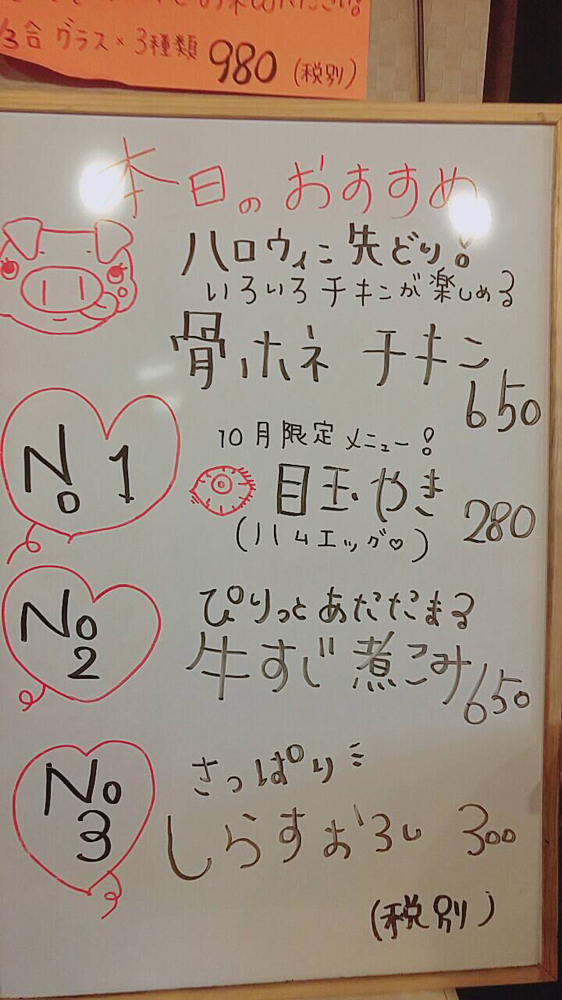 1/3合 グラス×3種類 980 (税別)
本日のおすすめ
ハロウィン先どり!
いろいろチキンが楽しめる
骨ホネ チキン
650
No 1
10月限定 メニュー!
目玉やき
(ハムエッグ♡)
280
No 2
ぴりっとあたたまる
牛すじ煮こみ
650
No 3
さっぱり
しらすおろし 300
(税別)